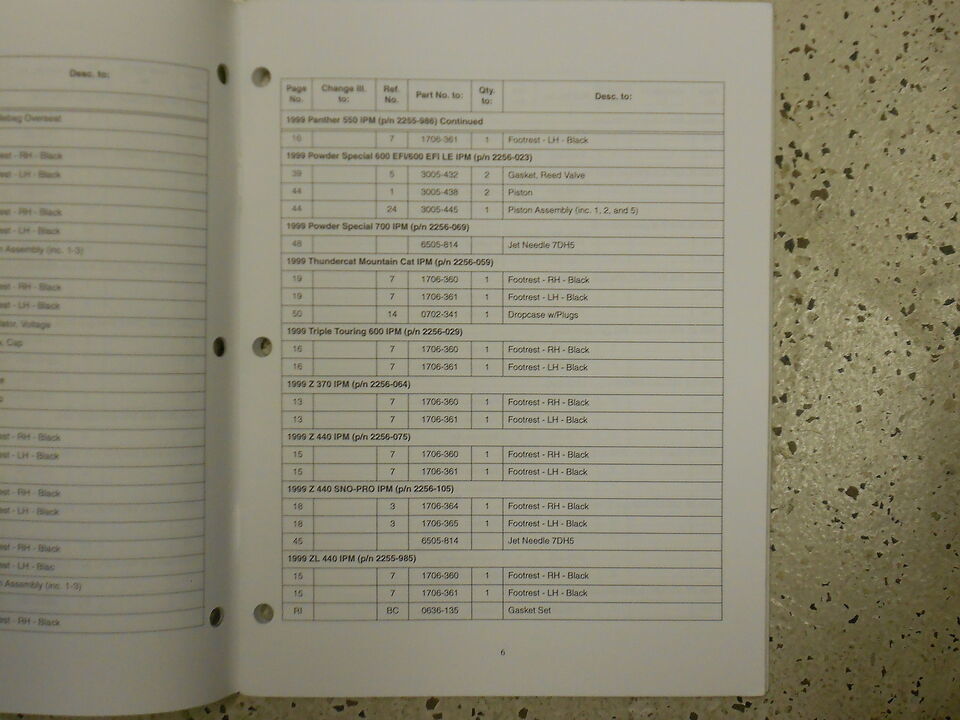 Desc. to:
debag Oversest
est - RH - Black
est - LH - Black
est - RH - Black
est - LH - Black
n Assembly (inc. 1-3)
est - RH - Black
est - LH - Black
lator, Voltage
k, Cap
e
p
est - RH - Black
est - LH - Black
est - RH - Black
est - LH - Black
est - RH - Black
est - LH - Blac
n Assembly (inc. 1-3)
est - RH - Black
Page No. Change Ill. to: Ref. No. Part No. to: Qty. to: Desc. to:
1999 Panther 550 IPM (p/n 2255-986) Continued
16 7 1706-361 1 Footrest - LH - Black
1999 Powder Special 600 EFI/600 EFI LE IPM (p/n 2256-023)
39 5 3005-432 2 Gasket, Reed Valve
44 1 3005-438 2 Piston
44 24 3005-445 1 Piston Assembly (inc. 1, 2, and 5)
1999 Powder Special 700 IPM (p/n 2256-069)
48 6505-814 Jet Needle 7DH5
1999 Thundercat Mountain Cat IPM (p/n 2256-059)
19 7 1706-360 1 Footrest - RH - Black
19 7 1706-361 1 Footrest - LH - Black
50 14 0702-341 1 Dropcase w/Plugs
1999 Triple Touring 600 IPM (p/n 2256-029)
16 7 1706-360 1 Footrest - RH - Black
16 7 1706-361 1 Footrest - LH - Black
1999 Z 370 IPM (p/n 2256-064)
13 7 1706-360 1 Footrest - RH - Black
13 7 1706-361 1 Footrest - LH - Black
1999 Z 440 IPM (p/n 2256-075)
15 7 1706-360 1 Footrest - RH - Black
15 7 1706-361 1 Footrest - LH - Black
1999 Z 440 SNO-PRO IPM (p/n 2256-105)
18 3 1706-364 1 Footrest - RH - Black
18 3 1706-365 1 Footrest - LH - Black
45 6505-814 Jet Needle 7DH5
1999 ZL 440 IPM (p/n 2255-985)
15 7 1706-360 1 Footrest - RH - Black
15 7 1706-361 1 Footrest - LH - Black
RI BC 0636-135 Gasket Set
6